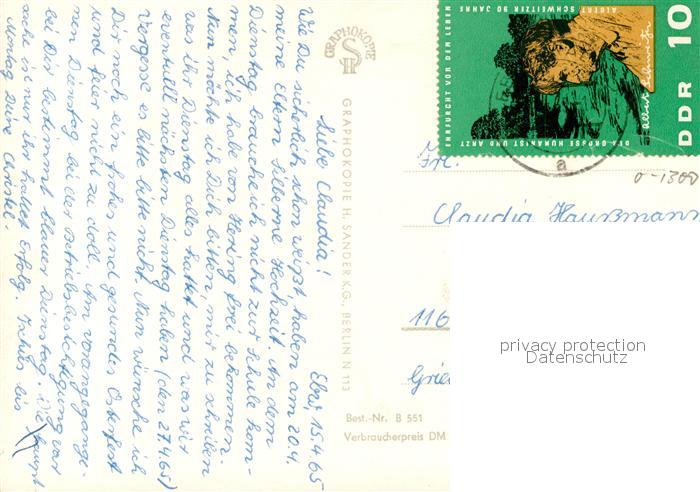 Ebw, 15.4.65
Liebe Claudia!
Wie Du sicherlich schon weißt, haben am 20.4.
meine Eltern Silberne Hochzeit. An dem
Dienstag brauch ich nicht zur Schule kom-
men, ich habe von Hering frei bekommen.
Nun möchte ich Dich bitten, mir zu schreiben
was ihr Dienstag alles hattet und was wir
eventuell nächsten Dienstag haben (den 27.4.65)
Vergesse es bitte bitte nicht. Nun wünsche ich
Dir noch ein frohes und gesundes Osterfest
und feier nicht zu doll. Am vorangegange-
nen Dienstag bei der Betriebsbesichtigung war
bei Dir bestimmt blauer Dienstag. Die Haupt
sache ist nur ihr hattet Erfolg. Tschüs bis
Montag Deine Christel.
GRAPHOKOPIE
H S
GRAPHOKOPIE H. SANDER K.G., BERLIN N 113
Best.-Nr. B 551
Verbraucherpreis DM
DDR 10
ALBERT SCHWEITZER 90 JAHRE
EHRFURCHT VOR DEM LEBEN
DER GROSSE HUMANIST UND ARZT
Albert Schweitzer
a
0-1300
Frl.
Claudia Haußmann
116
Grie
privacy protection
Datenschutz